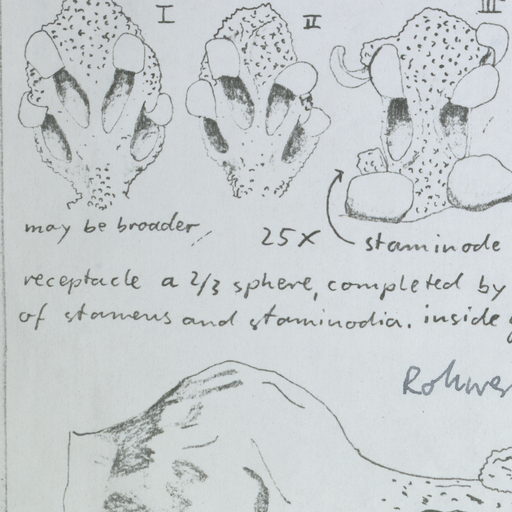 I II III
may be broader
25x staminode
receptacle a 2/3 sphere, completed by
of stamens and staminodia. inside
Rohwer